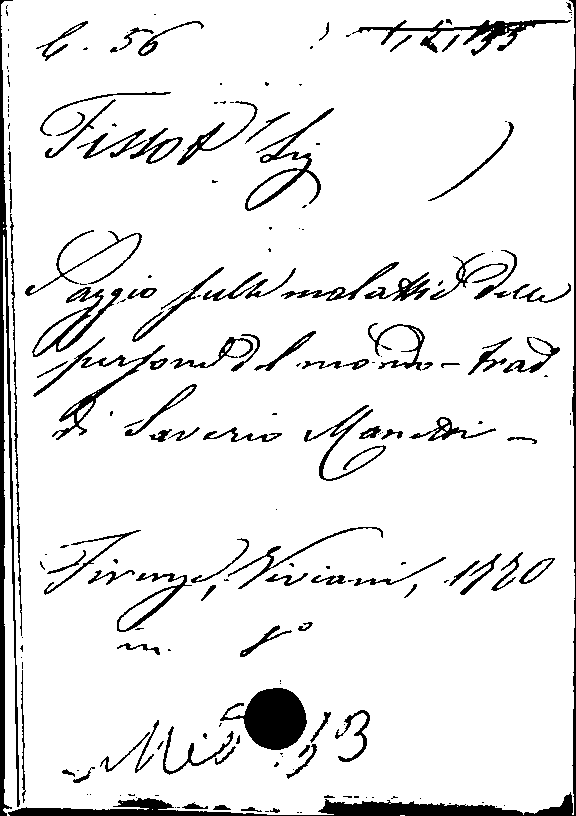 C. 56 1, 5, 133
Tissot Sig
Saggio sulle malattie delle
persone del mondo - trad.
di Saverio Manetti -
Firenze, Viviani, 1770
in 8°